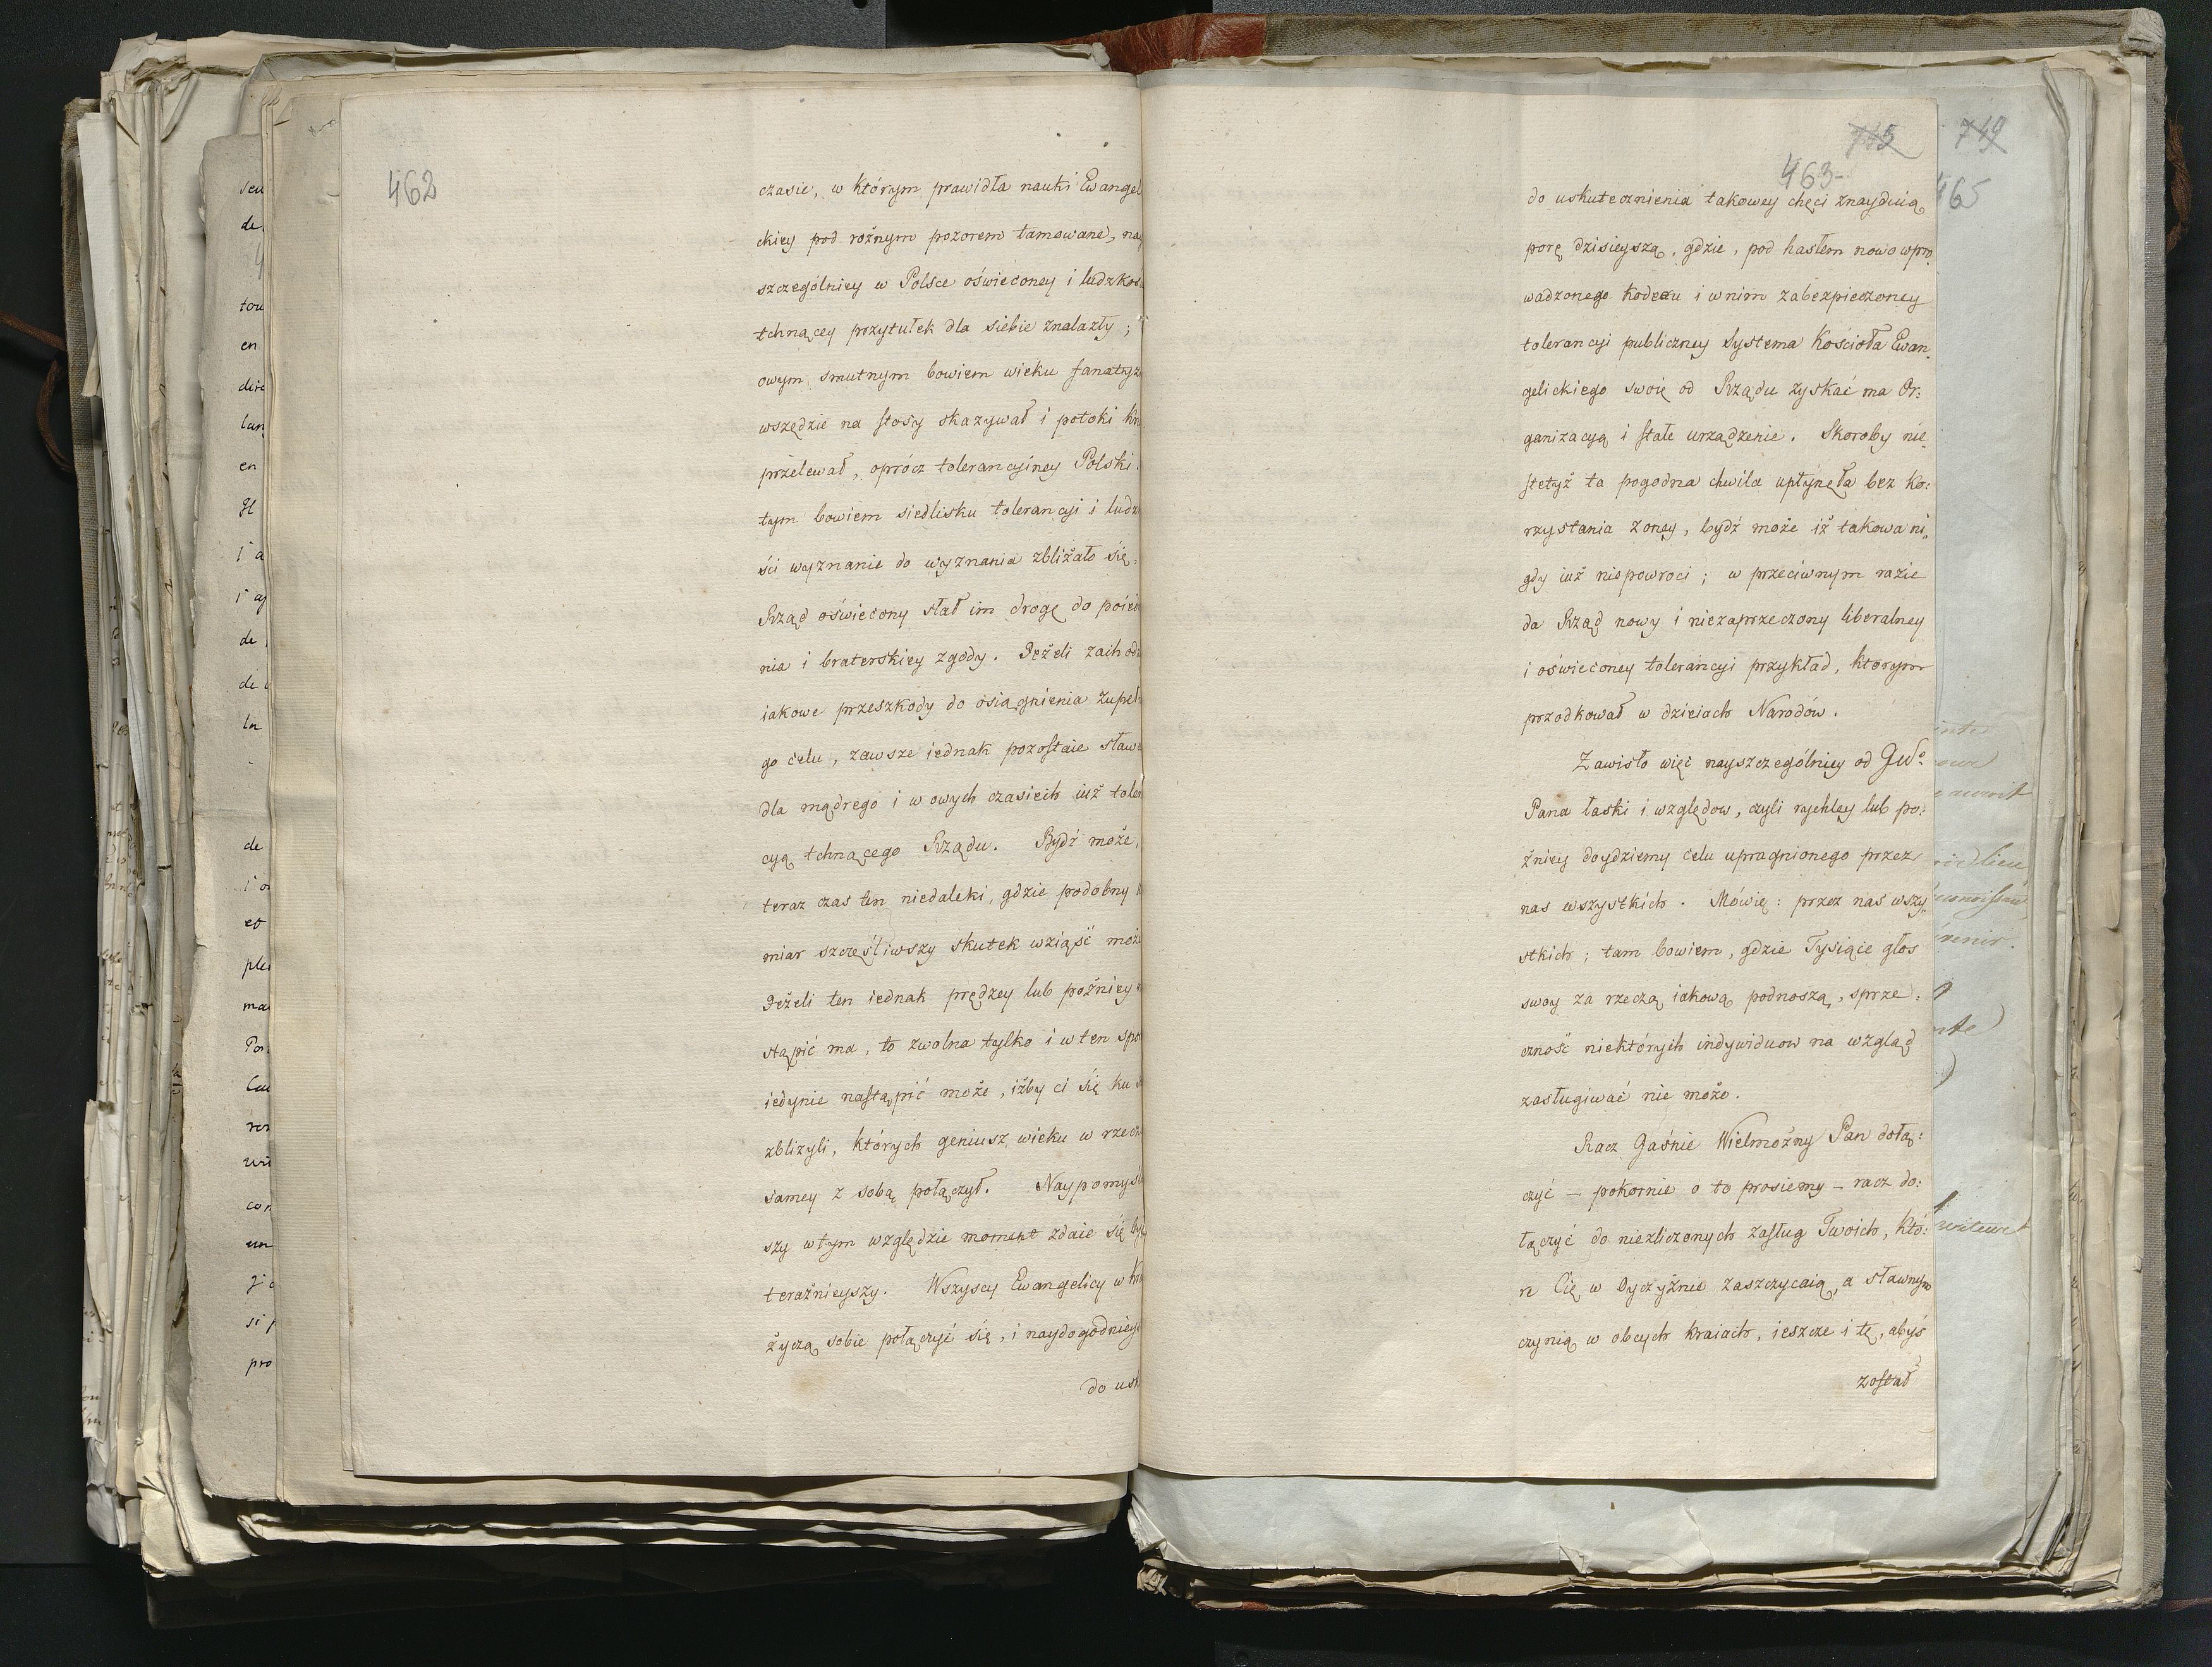 462
czasie, w którym prawidła nauki Ewangel
ckiey pod rożnym pozorem tamowane, nay
szczególniey w Polsce oświeconey i ludzkoś
tchnącey przytułek dla siebie znalazły;
owym smutnym bowiem wieku fanatyz
wszędzie na stosy skazywał i potoki krw
przelewał, oprócz tolerancyiney Polski.
tym bowiem siedlisku tolerancyi i ludz
ści wyznanie do wyznania zbliżało się,
Rząd oświecony słał im drogę do poied
nia i braterskiey zgody. Jeżeli zachodz
iakowe przeszkody do osiągnienia zupeł
go celu, zawsze iednak pozostaie sław
dla mądrego i w owych czasiech iuż toler
cyą tchnącego Rządu. Bydź może,
teraz czas ten niedaleki, gdzie podobny
miar szczęśliwszy skutek wziąść moż
Jeżeli ten iednak prędzey lub poźniey
stąpić ma, to zwolna tylko i w ten spo
iedynie nastąpić może, iżby ci się ku
zbliżyli, których geniusz wieku w rzecz
samey z sobą połączył. Naypomyśl
szy w tym względzie moment zdaie się by
teraźnieyszy. Wszyscy Ewangelicy w kra
życzą sobie połączyć się, i naydogodniey
do usk
463-
do uskutecznienia takowey chęci znayduią
porę dzisieyszą, gdzie, pod hasłem nowo wpro
wadzonego kodexu i w nim zabezpieczoney
tolerancyi publiczney Systema Kościoła Ewan.
gelickiego swoię od Rządu zyskać ma Or:
ganizacyą i stałe urządzenie. Skoroby nie
stetyż ta pogodna chwila upłynęła bez ko:
rzystania z oney, bydź może iż takowa ni„
gdy iuż niepowroci; w przeciwnym razie
da Rząd nowy i niezaprzeczony liberalney
i oświeconey tolerancyi przykład, ktorym
przodkował w dzieiach Narodów.
Zawisło więc nayszczególniey od
Pana łaski i względow, czyli rychley lub po:
źniey doydziemy celu upragnionego przez
nas wszystkich. Mówię: przez nas wszy„
stkich; tam bowiem, gdzie Tysiące głos
swoy za rzeczą iakową podnoszą, sprze:
czność niektórych indywiduow na wzgląd
zasługiwać nie może.
Racz Jaśnie Wielmożny Pan dołą:
czyć – pokornie o to prosiemy – racz do:
łączyć do niezliczonych zasług Twoich, któ:
n Cię w Oyczyźnie zaszczycaią, a sławnym
czynią w obcych kraiach, ieszcze i tę, abyś
został
749
465